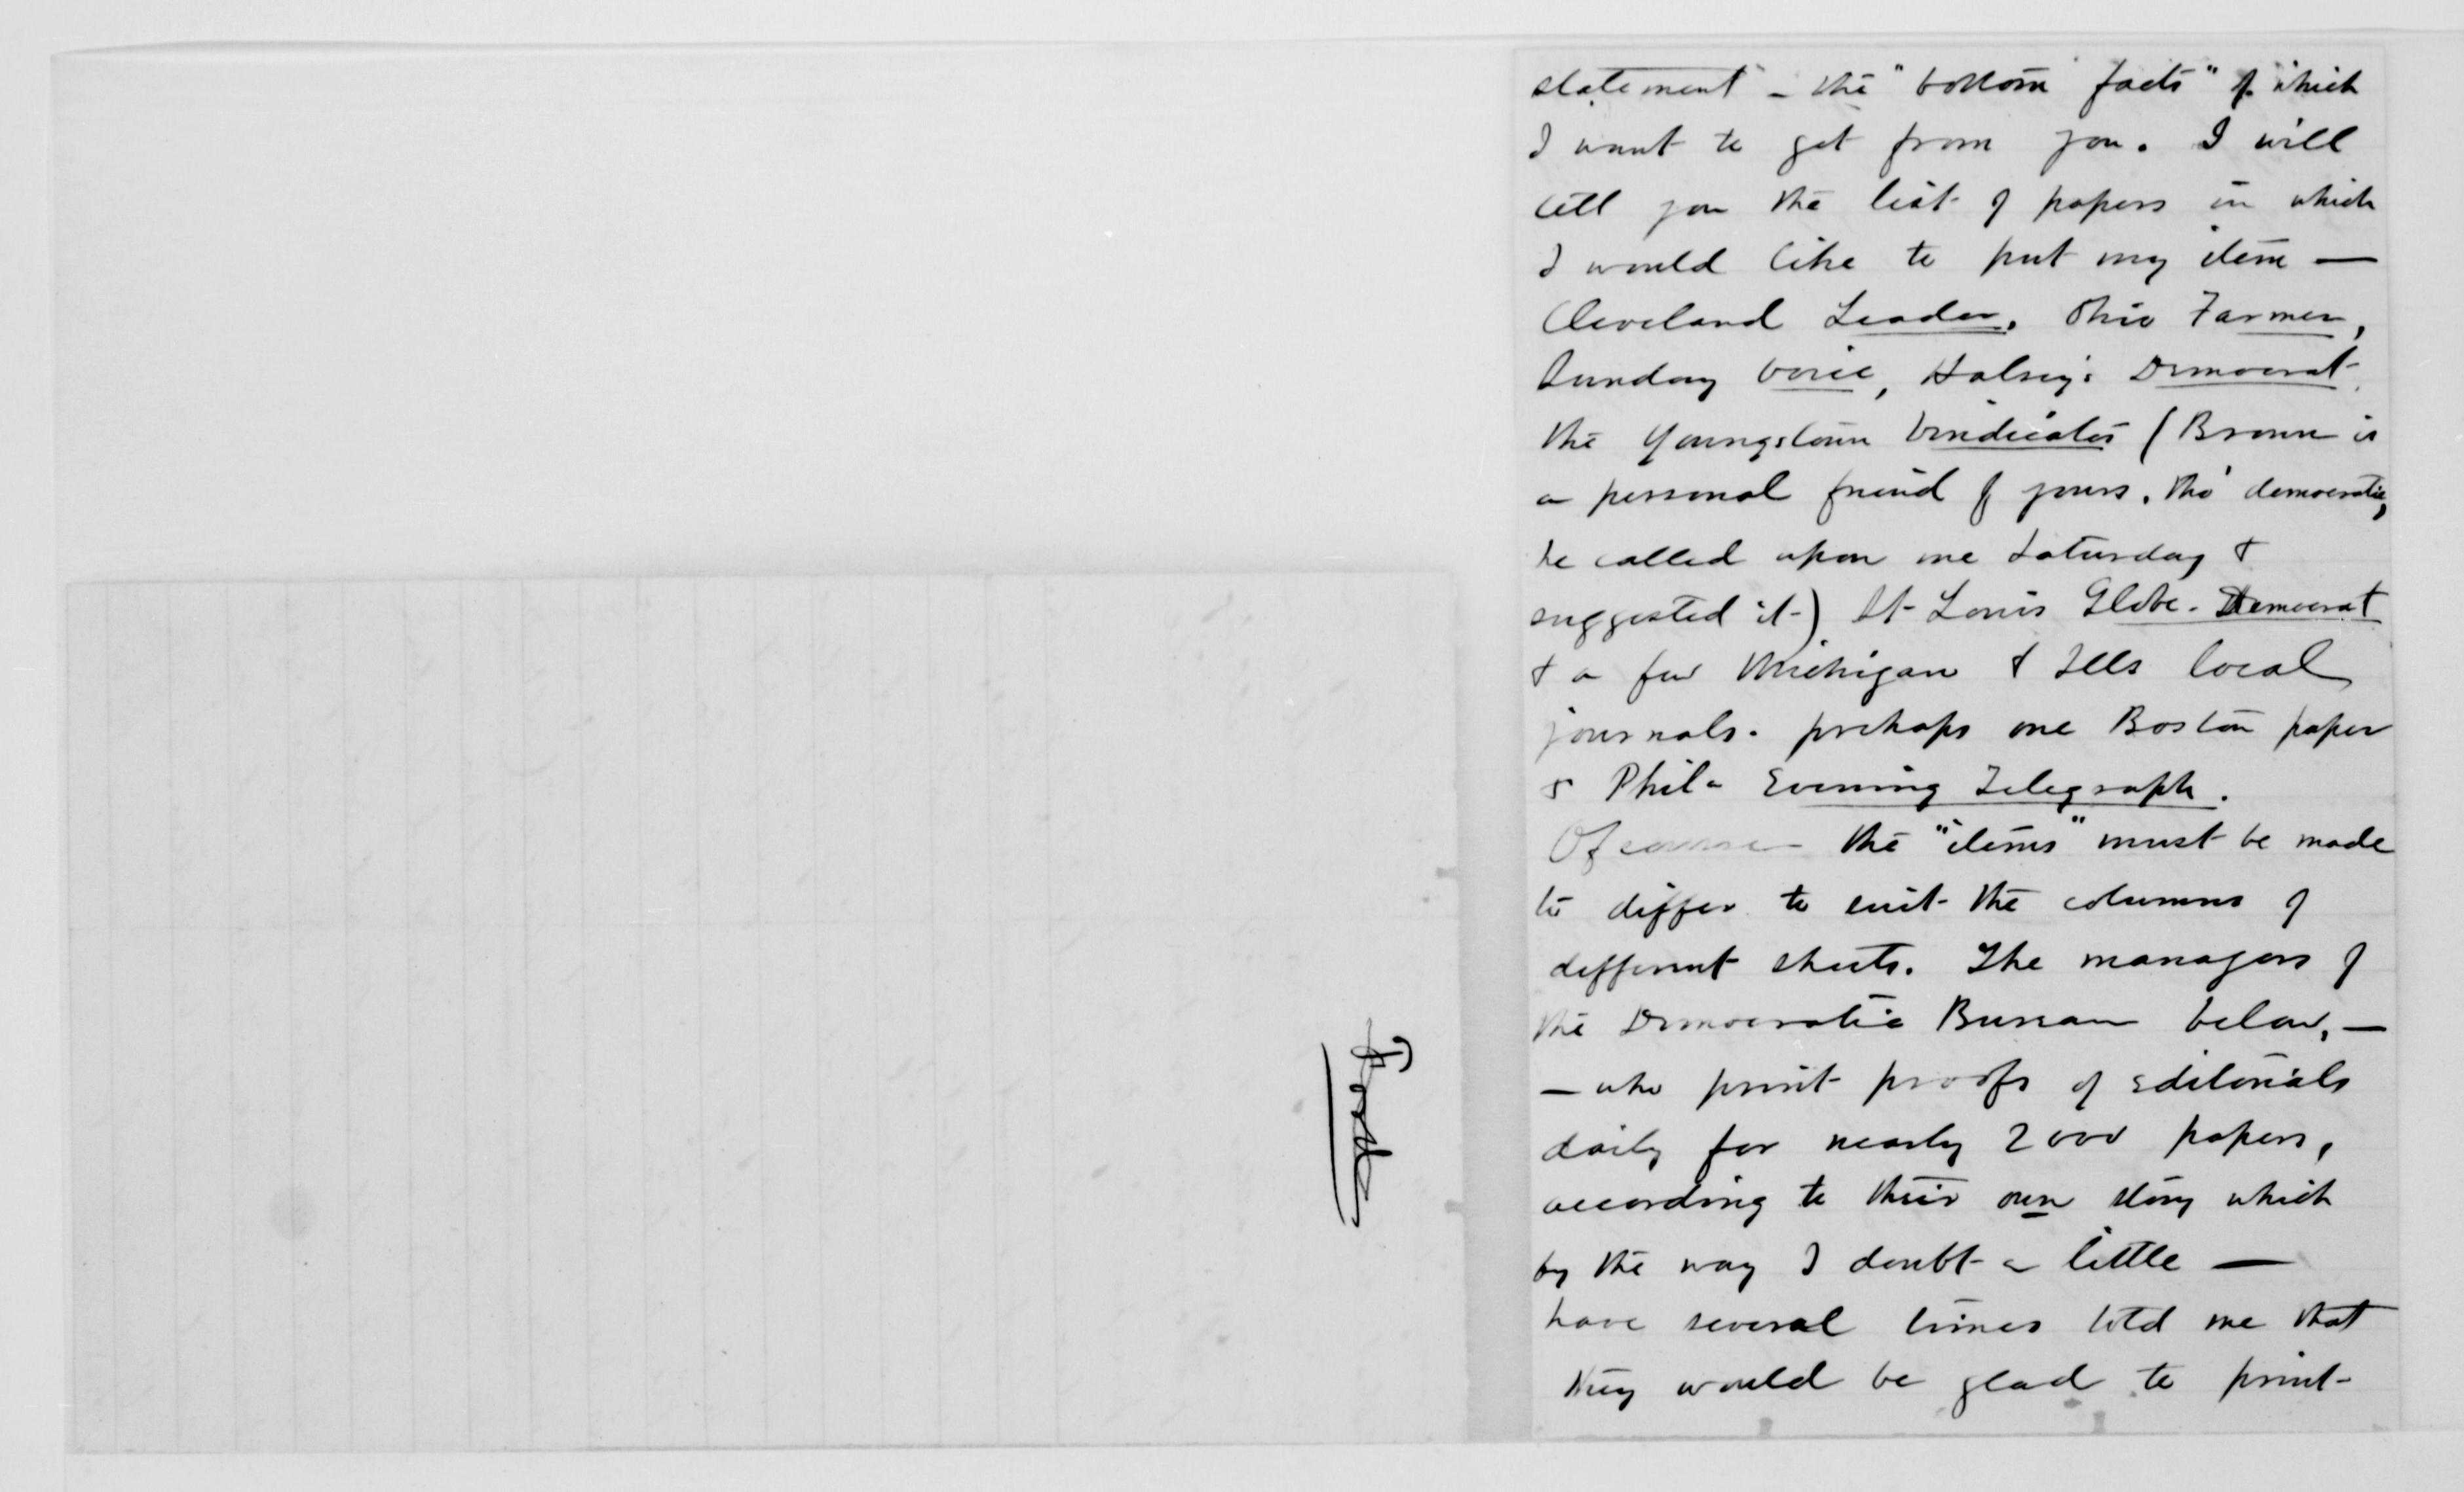 statement – the "bottom facts" of which
I want to get from you. I will
tell you the list of papers in which
I would like to put my item —
Cleveland Leader, Ohio Farmer,
Sunday Voice, Halsey's Democrat,
the Youngstown Vindicator (Brown is
a personal friend of yours, tho' democratic,
he called upon me Saturday &
suggested it-) St Louis Globe-Democrat
& a few Michigan & Ills local
journals. perhaps one Boston paper
& Phila Evening Telegraph.
Of course the "items" must be made
to differ to suit the columns of
different sheets. The managers of
the Democratic Bureau below, —
— who print proofs of editorials
daily for nearly 2000 papers,
according to their own story which
by the way I doubt a little —
have several times told me that
they would be glad to print